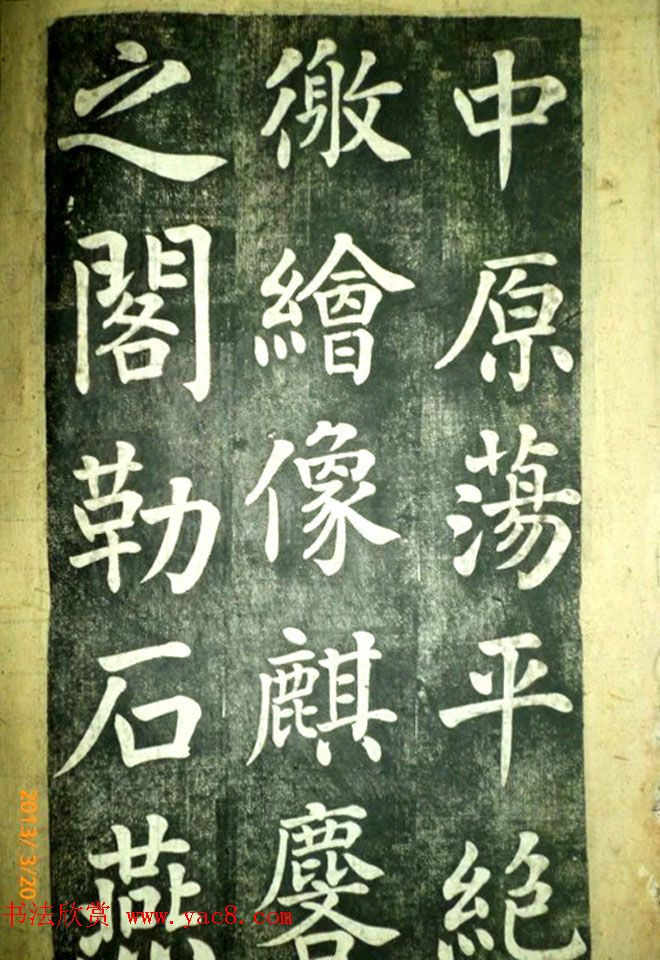 中原蕩平絕
徼繪像麒麐
之閣勒石燕
2013/3/20
书法欣赏 www.yac8.com